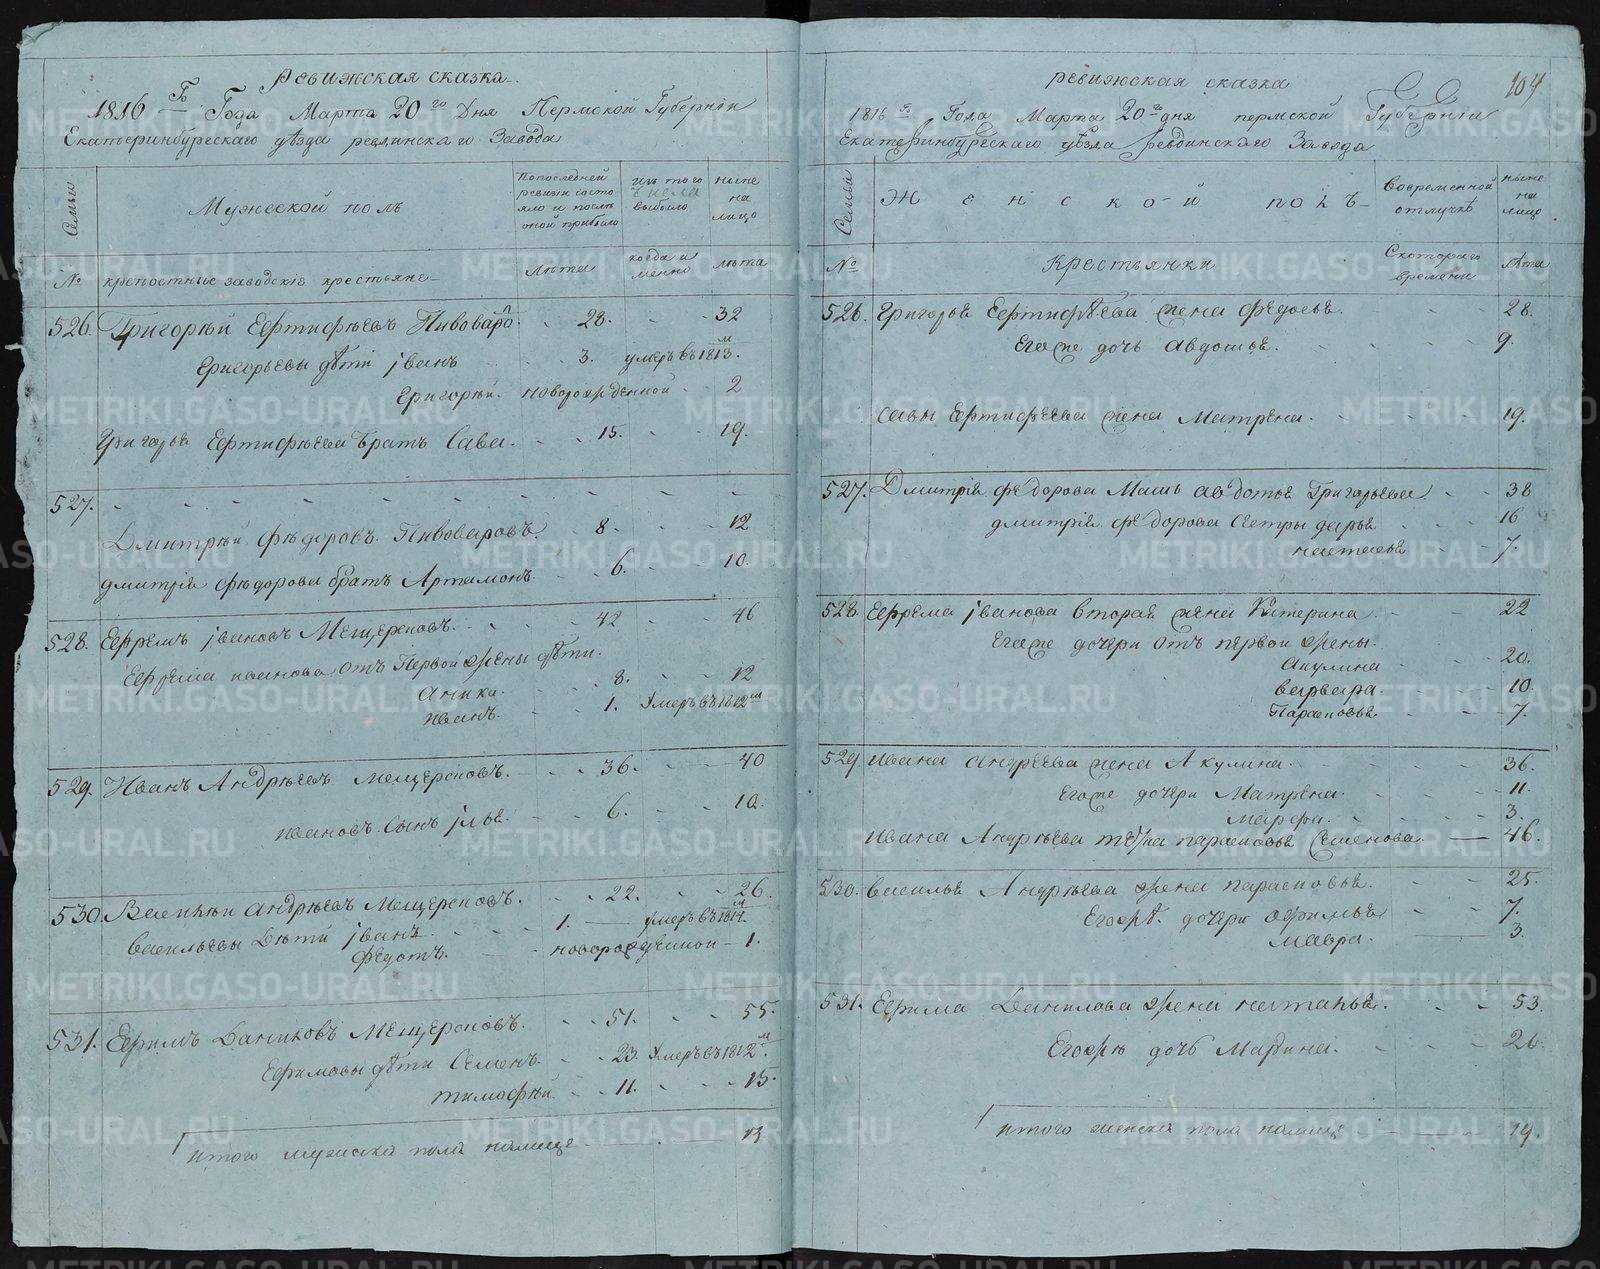 Ревижская сказка
1816 го Года Марта 20 го Дня Пермской Губернiи
Екатеринбурескаго уѣзда ревдинскаго Завода
Семьи
Мужеской полъ
Попоследней ревизiи состояло и послѣ оной прибыло
изъ того числа выбыло
ныне на лицо
№ крепостные заводскiе крестьяне
лѣта
когда и менно
лѣта
526. Григорѣй Евтифѣевъ Пивоваро 28. 32
Григорьевы дѣти iванъ 3. умеръ въ 1813 м.
Григорѣй. новорожденной 2
Григорья Евтифѣева братъ Сава. 15. 19.
527.
Дмитрѣй Фѣдоровъ Пивоваровъ. 8. 12
дмитрiя Фѣдорова братъ Артамонъ. 6. 10.
528. Ефремъ iвановъ Мещереповъ. 42 46
Ефрема иванова отъ Первой жены дѣти.
Аника. 8. 12
иванъ. 1. Умеръ въ 1812 м
529. Иванъ Андрѣевъ мещереповъ. 36. 40
ивановъ Сынъ iлья. 6. 10.
530. Василѣи Андрѣевъ Мещереповъ. 22. 26.
Васильевы Дѣти iванъ. 1. умеръ въ 1814 м.
Фѣдотъ. новорожденной 1.
531. Ефимъ Даниловъ Мещереповъ. 51. 55.
Ефимовы дѣти Семенъ. 23. Умеръ въ 1812 м.
тимофѣй. 11. 15.
итого мужеска пола налице 13
104
ревижская сказка
1816 го Года Марта 20 го дня пермской Губернiи
Екатеринбурескаго уѣзда ревдинскаго Завода
Семьи
Женской полъ
Вовременной отлучкѣ
ныне на лицо
№ Крестьянки
Скотораго времени
лѣта
526. Григорья Евтифѣева жена Федосья. 28.
Егоже дочь Авдотья. 9.
Савы Евтифѣева жена Матрена. 19.
527. Дмитрiя федорова Мать авдотья Григорьева 38
дмитрiя федорова Сестры дарья 16
настасья 7
528. Ефрема iванова вторая жена Катерина 22
Егоже дочери отъ первой жены.
Акулина 20.
варвара. 10.
Парасковья 7.
529 ивана андреева жена Акулина. 36.
Егоже дочери Матрена. 11.
Марфа. 3.
ивана Андрѣева тѣща парасковья Семенова 46.
530. василья Андрѣева жена парасковья. 25.
Егожѣ. дочери офимья 7.
мавра. 3.
531. Ефима Данилова жена наталья. 53.
Егожѣ дочь Марина. 26.
итого женска пола налице 19.
METRIKI.GASO-URAL.RU